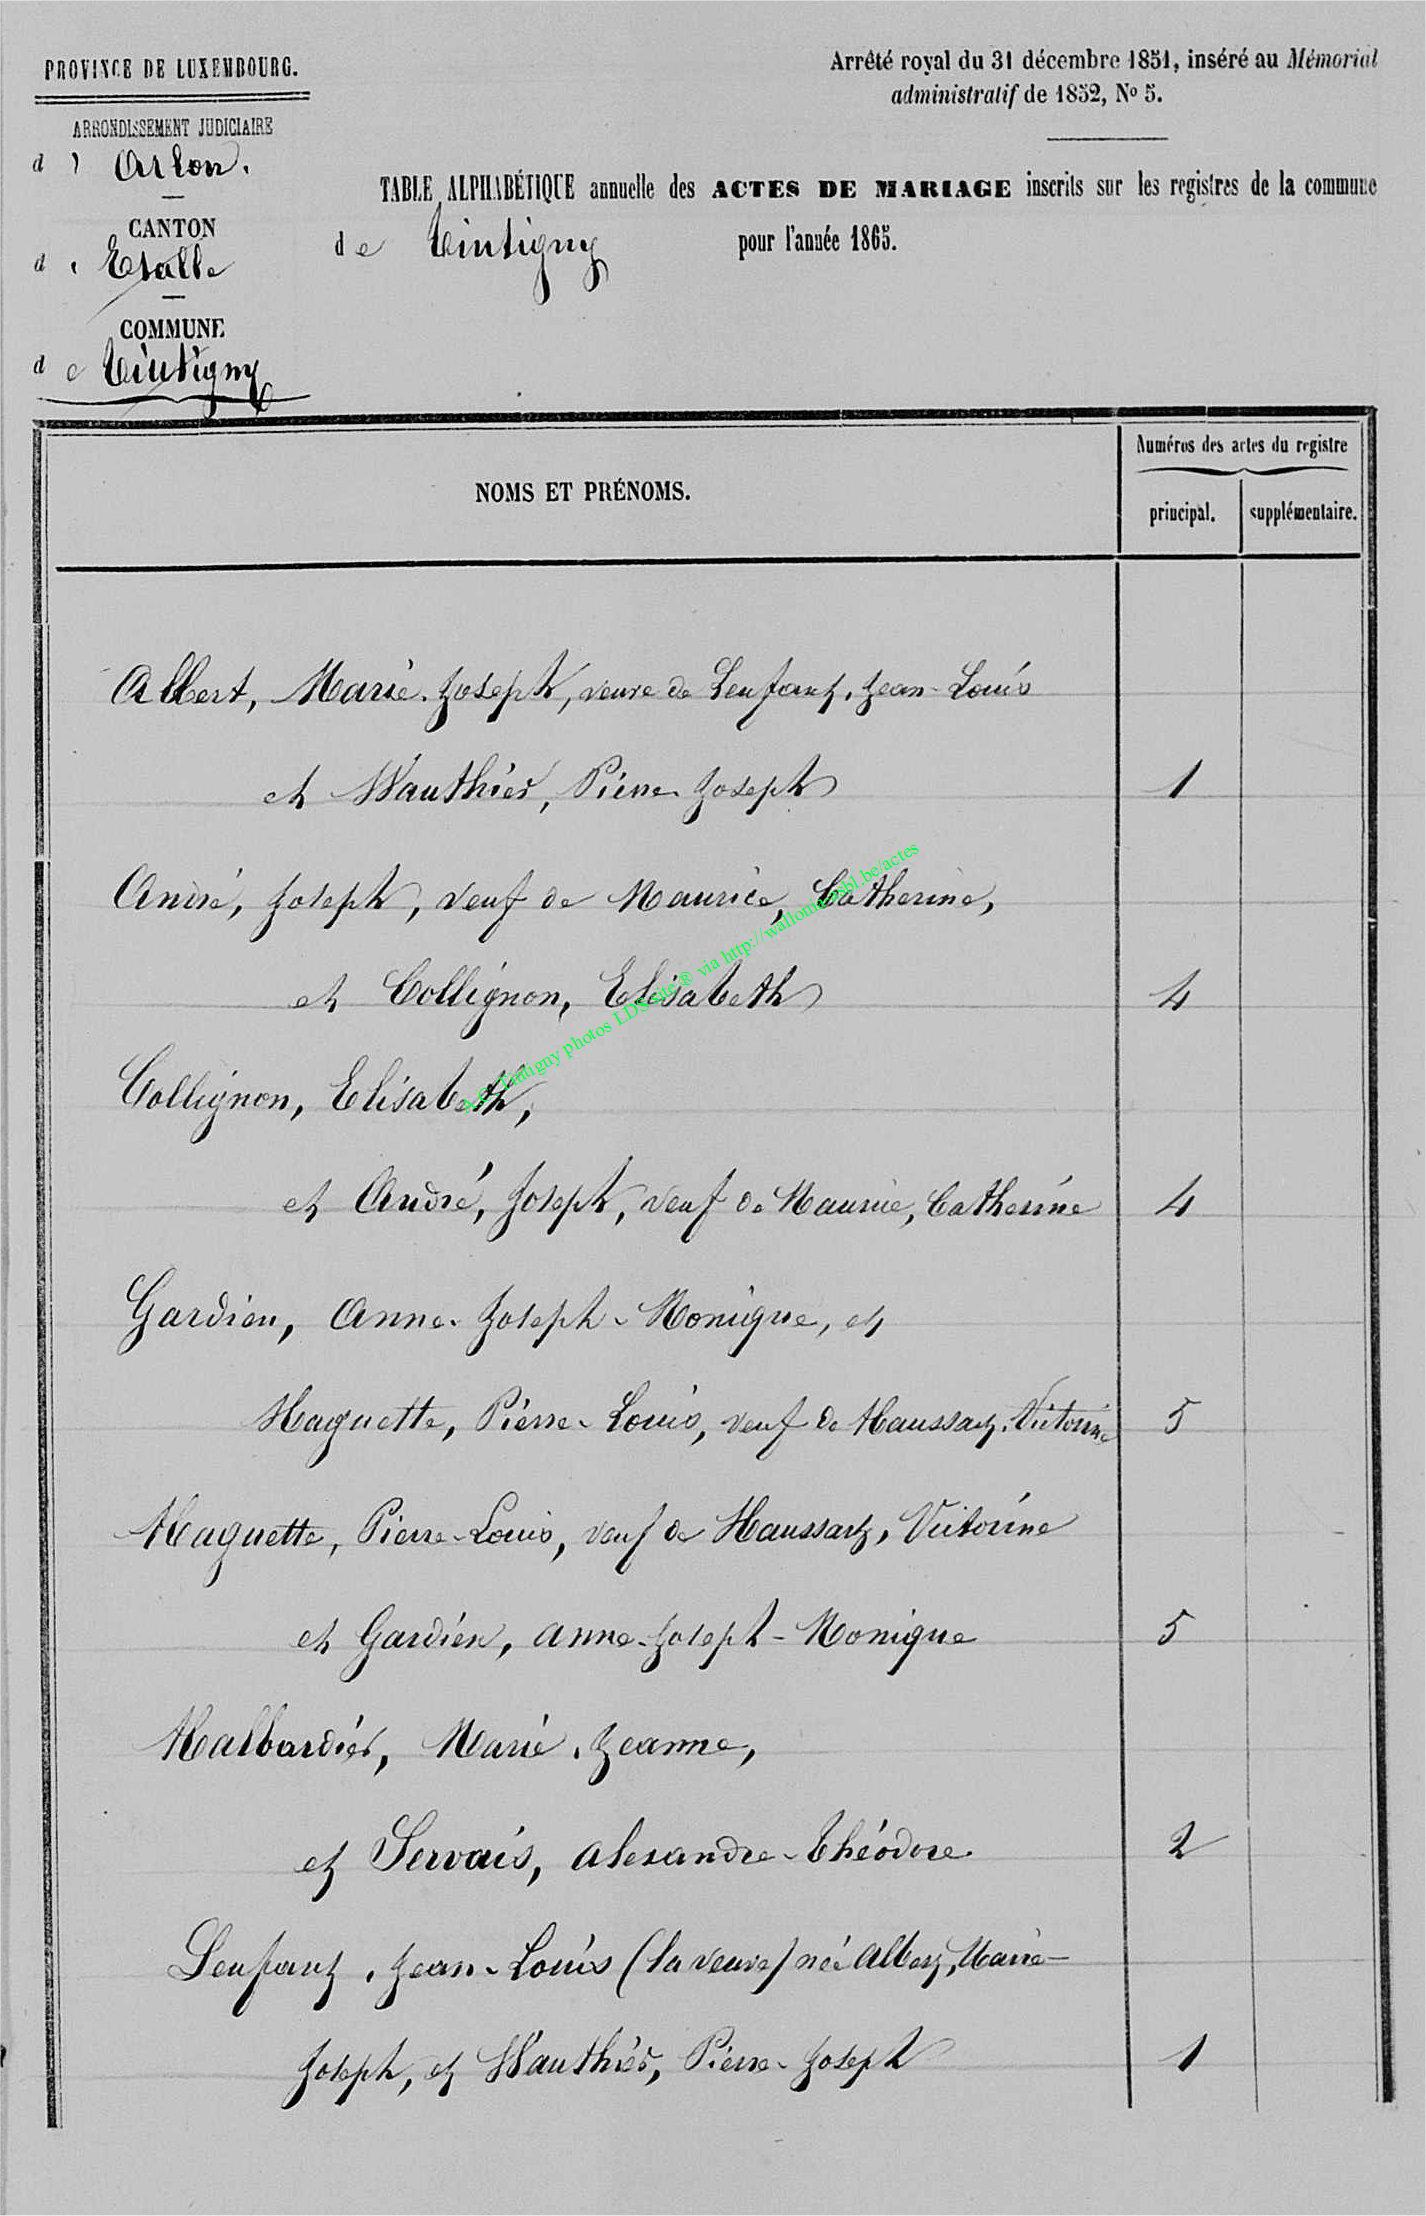 PROVINCE DE LUXEMBOURG.
Arrêté royal du 31 décembre 1851, inséré au Mémorial
administratif de 1852, No 5.
ARRONDISSEMENT JUDICIAIRE
d' Arlon.
TABLE ALPHABÉTIQUE annuelle des ACTES DE MARIAGE inscrits sur les registres de la commune
de Tintigny pour l'année 1865.
CANTON
d' Etalle
COMMUNE
de Tintigny
NOMS ET PRÉNOMS.
Numéros des actes du registre
principal. supplémentaire.
Albert, Marie-Joseph, veuve de Lenfant, Jean-Louis
et Wauthier, Pierre-Joseph 1
André, Joseph, veuf de Maurice, Catherine,
et Collignon, Elisabeth 4
Collignon, Elisabeth,
et André, Joseph, veuf de Maurice, Catherine 4
Gardien, Anne-Joseph-Monique, et
Haguette, Pierre-Louis, veuf de Haussart, Victorine 5
Haguette, Pierre-Louis, veuf de Haussart, Victorine
et Gardien, Anne-Joseph-Monique 5
Halbardier, Marie-Jeanne,
et Servais, Alexandre-Théodore 2
Lenfant, Jean-Louis (la veuve) née Albert, Marie-
Joseph, et Wauthier, Pierre-Joseph 1
A.C. Tintigny photos LDS site ® via http://wallonia-asbl.be/actes